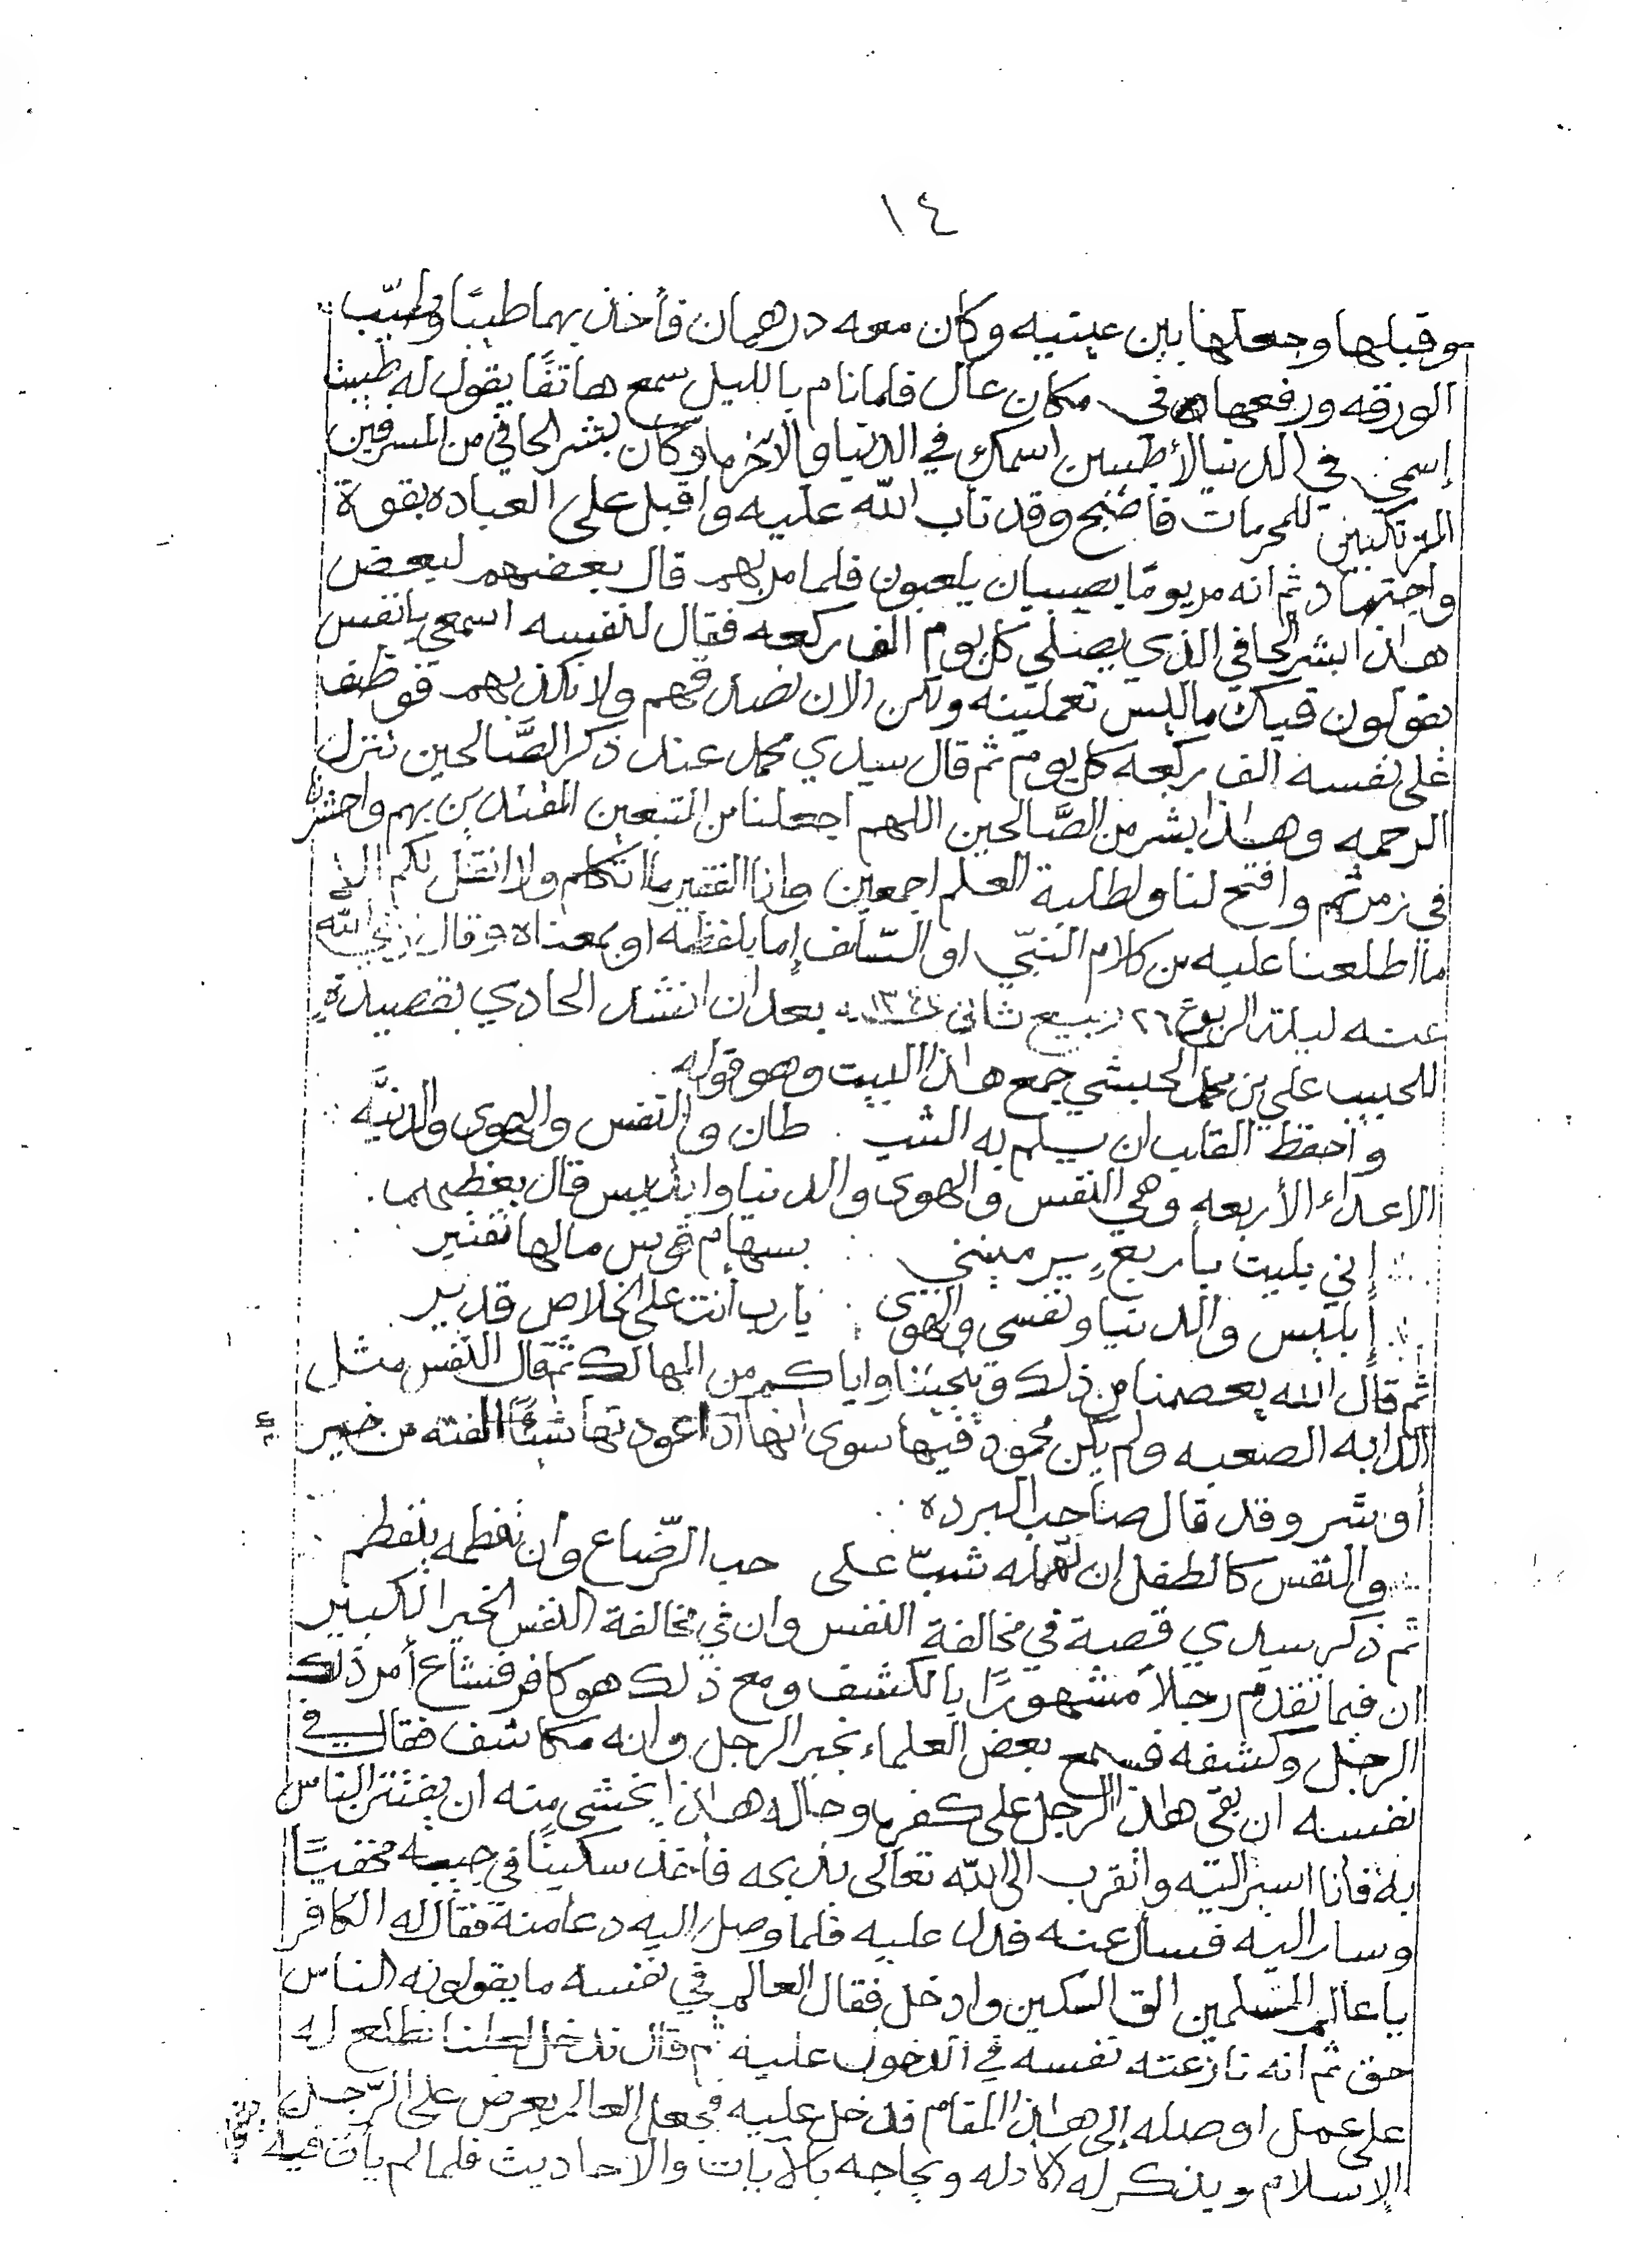 ١٤
وقبلها وجعلها بين عينيه وكان معه درهمان فأخذ بهما طيبًا وطيّب
الورقه ورفعها في مكان عال فلما نام بالليل سمع هاتفًا يقول له طيبت
إسمي في الدنيا لأطيبن اسمك في الدنيا والآخره وكان بشر الحافي من المسرفين
المرتكبين للمحرمات فأصبح وقد تاب الله عليه واقبل على العباده بقوة
واجتهاد ثم انه مر يومًا بصبيان يلعبون فلما مر بهم قال بعضهم لبعض
هذا بشر الحافي الذي يصلي كل يوم الف ركعه فقال لنفسه اسمعي يانفس
يقولون فياك ماليس تعملينه ولكن الان نصدقهم ولا نكذبهم فوظف
على نفسه الف ركعه كل يوم ثم قال سيدي محمد عند ذكر الصَّالحين تنزل
الرحمه وهذا بشر من الصَّالحين اللهم اجعلنا من المتبعين المقتدين بهم واحشرنا
في زمرتهم وافتح لنا ولطلبة العلم اجمعين وانا الفقير ما اتكلم ولا انقل لكم الا
ما اطلعنا عليه من كلام النبيّ او السّلف إما بلفظه او بمعناه وقال رضي الله
عنه ليلة الربوع ٢٦ ربيع ثاني بعد ان انشد الحادي بقصيدةٍ
للحبيب علي بن محمد الحبشي جمع هذا البيت وهو قوله
واحفظ القلب ان يسلم به الشيـ طان والنفس والهوى والدنيَّه
الاعداء الأربعه وهي النفس والهوى والدنيا وابليس قال بعضهم
إني بليت بأربعٍ يرمينني بسهام قوس مالها تفتير
إبليس والدنيا ونفسي والهوى يارب أنت على الخلاص قدير
ثم قال الله يعصمنا من ذلك وينجينا واياكم من المهالك ثم قال النفس مثل
الدابه الصعبه ولم يكن محمود فيها سوى انها اذا عودتها شيئًا الفته من خير
أو شر وقد قال صاحب البرده
والنفس كالطفل ان تهمله شبّ على حب الرّضاع وان تفطمه ينفطم
ثم ذكر سيدي قصة في مخالفة النفس وان في مخالفة النفس الخير الكبير
ان فيما تقدم رجلاً مشهورًا بالكشف ومع ذلك هو كافر فشاع أمر ذلك
الرجل وكشفه فسمع بعض العلماء بخبر الرجل وانه مكاشف فقال في
نفسه ان بقي هذا الرجل على كفره وحاله هذا يخشى منه ان يفتتن الناس
به فأنا اسير اليه واتقرب الى الله تعالى بذبحه فأخذ سكينًا في جيبه مخفيًا
وسار اليه فسأل عنه فدل عليه فلما وصل اليه دعا منه فقال له الكافر
ياعالم المسلمين الق السكين وادخل فقال العالم في نفسه ما يقولونه الناس
حق ثم انه نازعته نفسه في الدخول عليه ثم قال ندخل لعلنا نطلع له
على عمل اوصله إلى هذا المقام فدخل عليه فجعل العالم يعرض على الرّجل
الإسلام ويذكر له الأدله ويحاجه بالآيات والاحاديث فلما لم يأت فيه